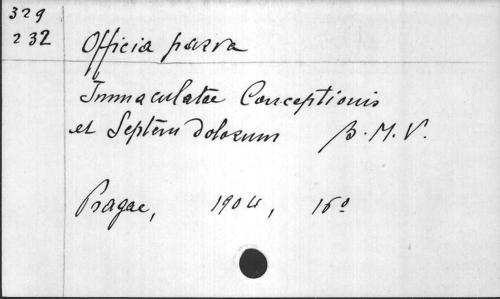 329
232
Officia parva
Immaculatae Conceptionis
et Septem dolorum B. M. V.
Pragae, 1904, 16º